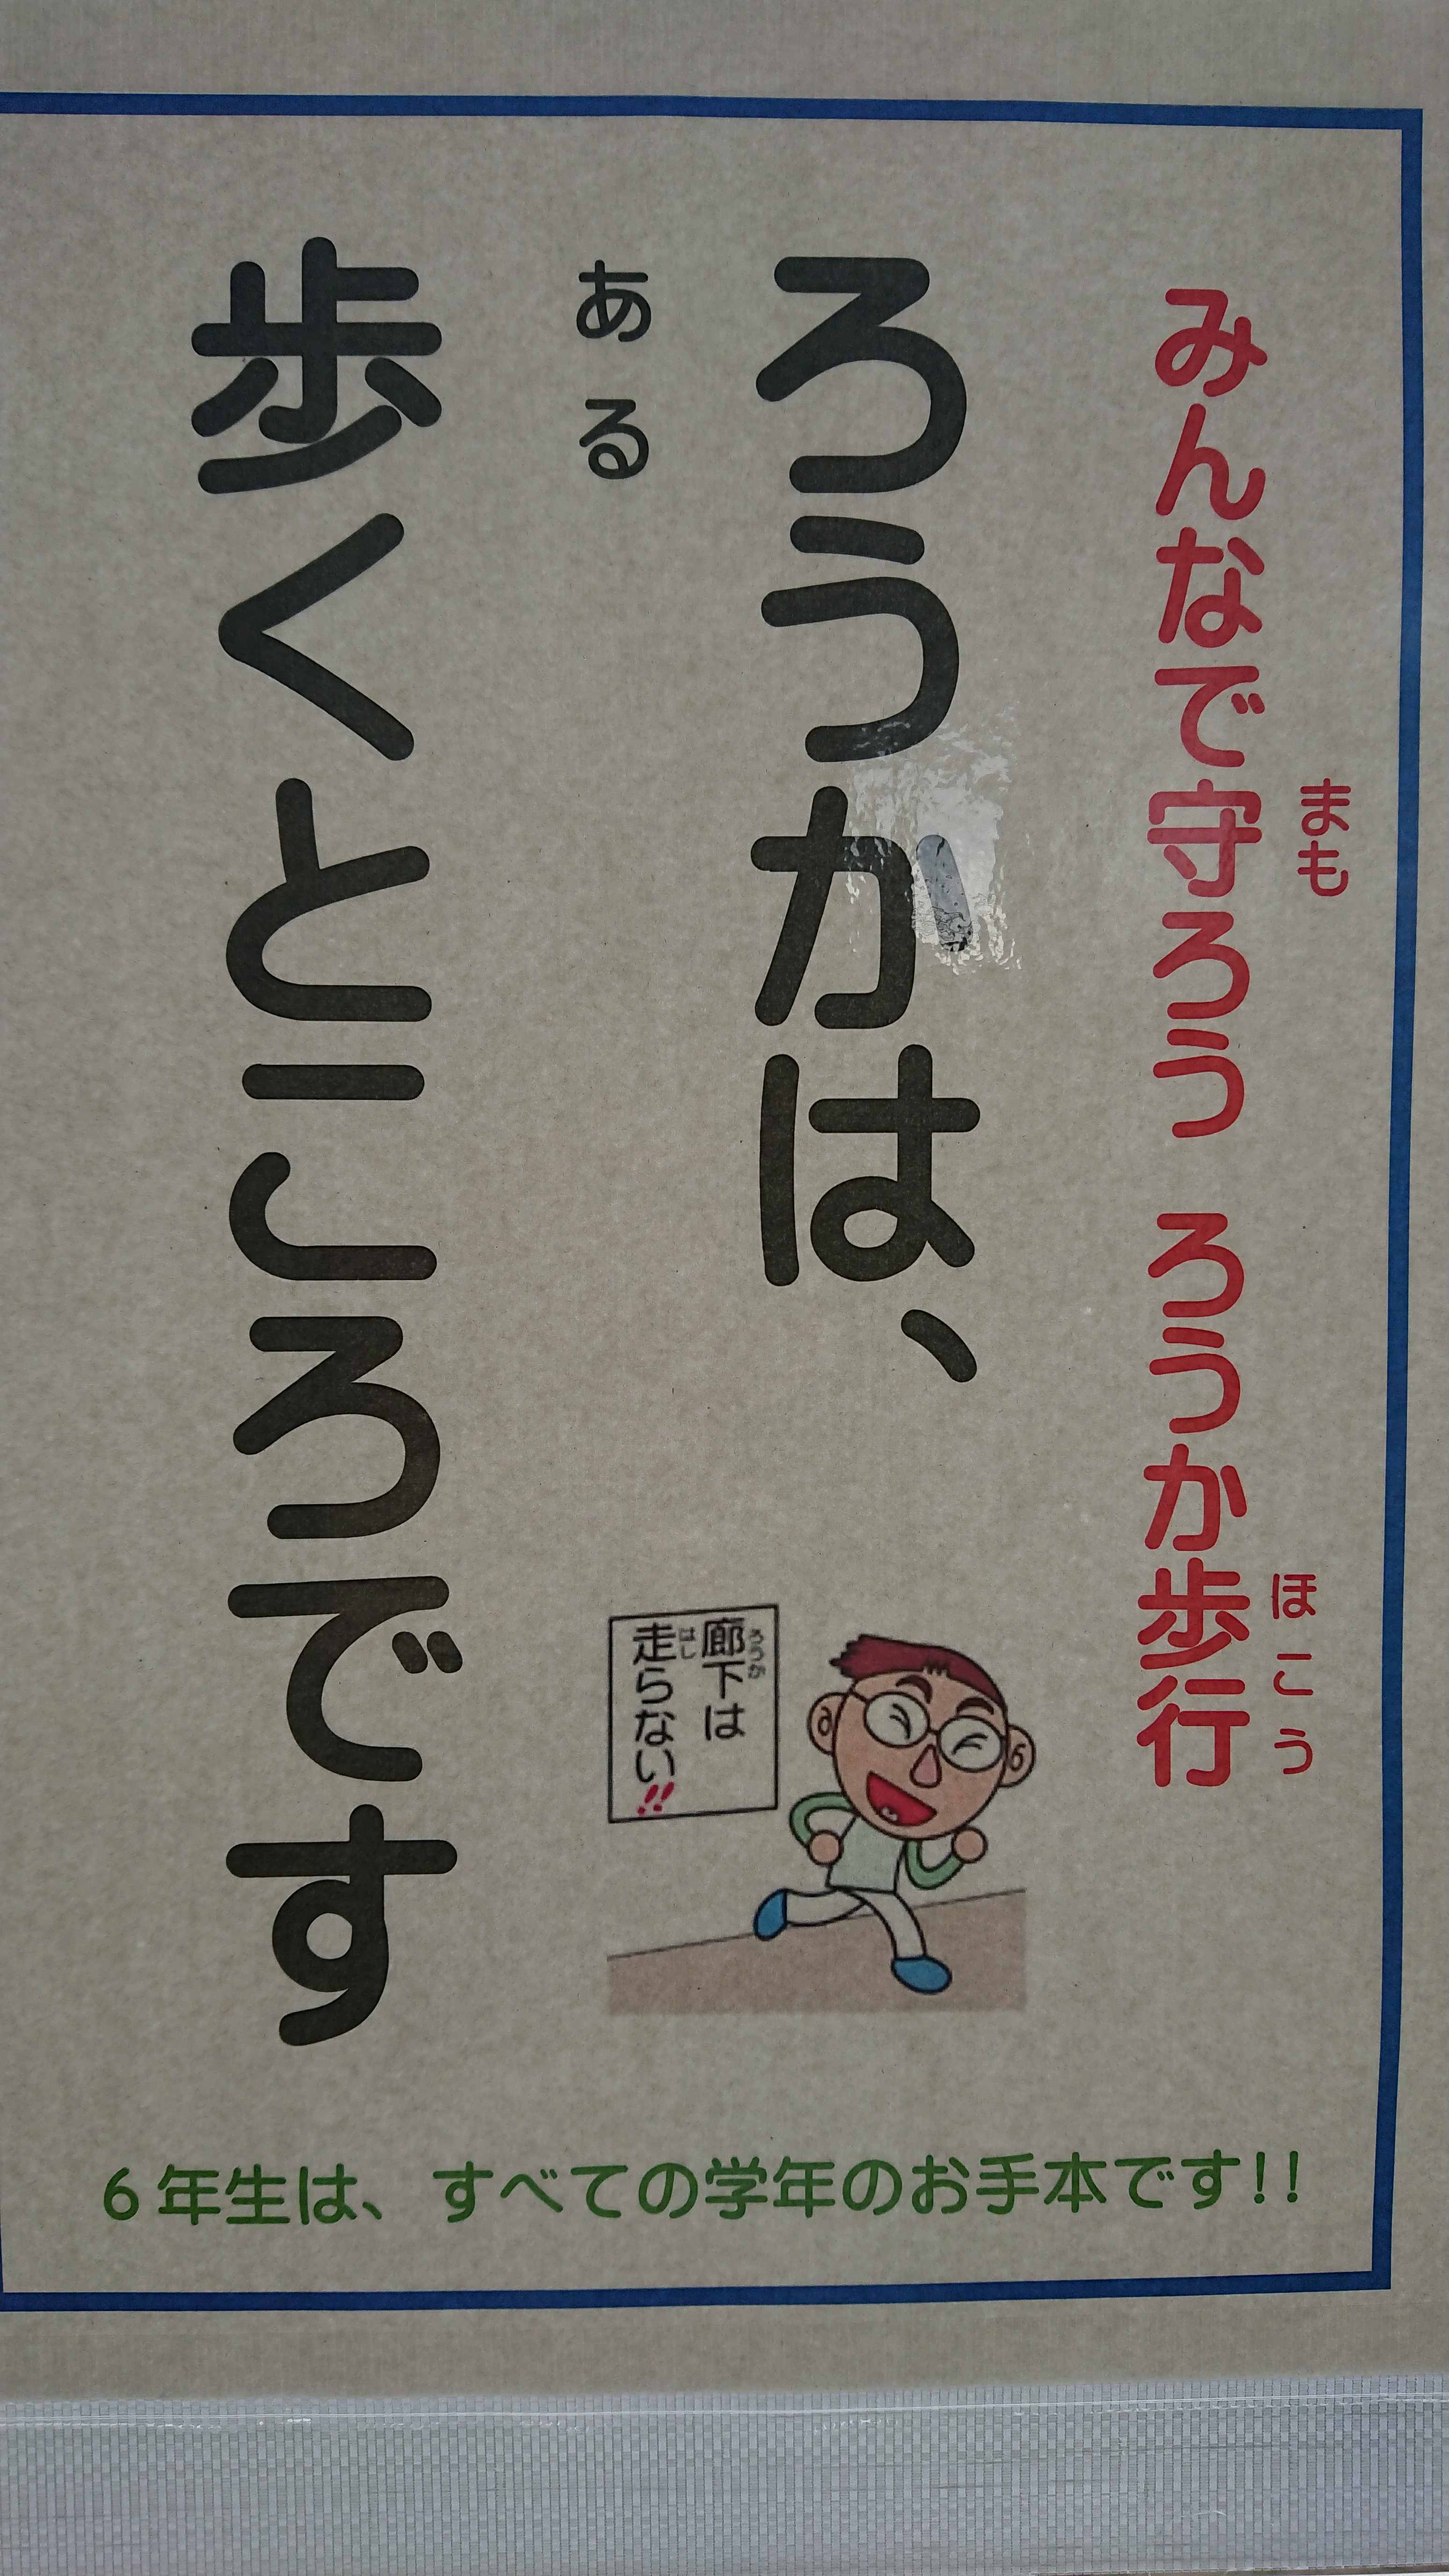 みんなで守ろう ろうか歩行
まも
ほこう
ろうかは、
ある
歩くところです
廊下は
ろうか
走らない!!
はし
6年生は、すべての学年のお手本です!!